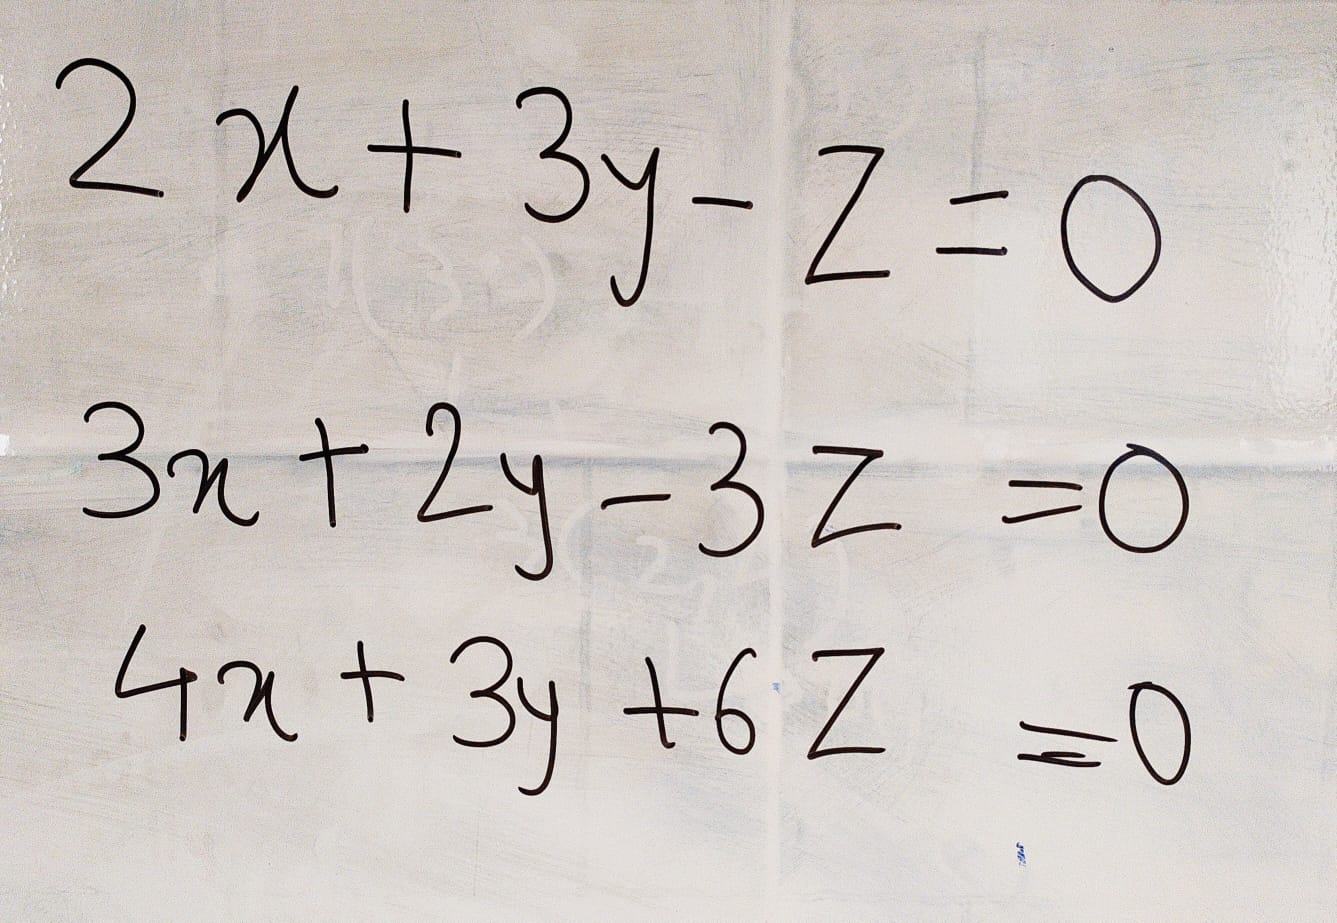 2x + 3y - Z = 0
3x + 2y - 3Z = 0
4x + 3y + 6Z = 0